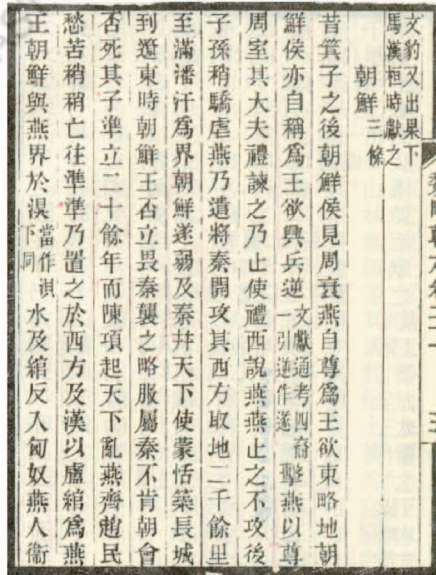 文豹又出果下
馬漢桓時獻之
朝鮮三條
昔箕子之後朝鮮侯見周衰燕自尊爲王欲東略地朝
鮮侯亦自稱爲王欲興兵逆文獻通考四裔一引逆作遂擊燕以尊
周室其大夫禮諫之乃止使禮西說燕燕止之不攻後
子孫稍驕虐燕乃遣將秦開攻其西方取地二千餘里
至滿潘汗爲界朝鮮遂弱及秦幷天下使蒙恬築長城
到遼東時朝鮮王否立畏秦襲之略服屬秦不肯朝會
否死其子準立二十餘年而陳項起天下亂燕齊趙民
愁苦稍稍亡往準準乃置之於西方及漢以盧綰爲燕
王朝鮮與燕界於淏當作浿下同水及綰反入匈奴燕人衞